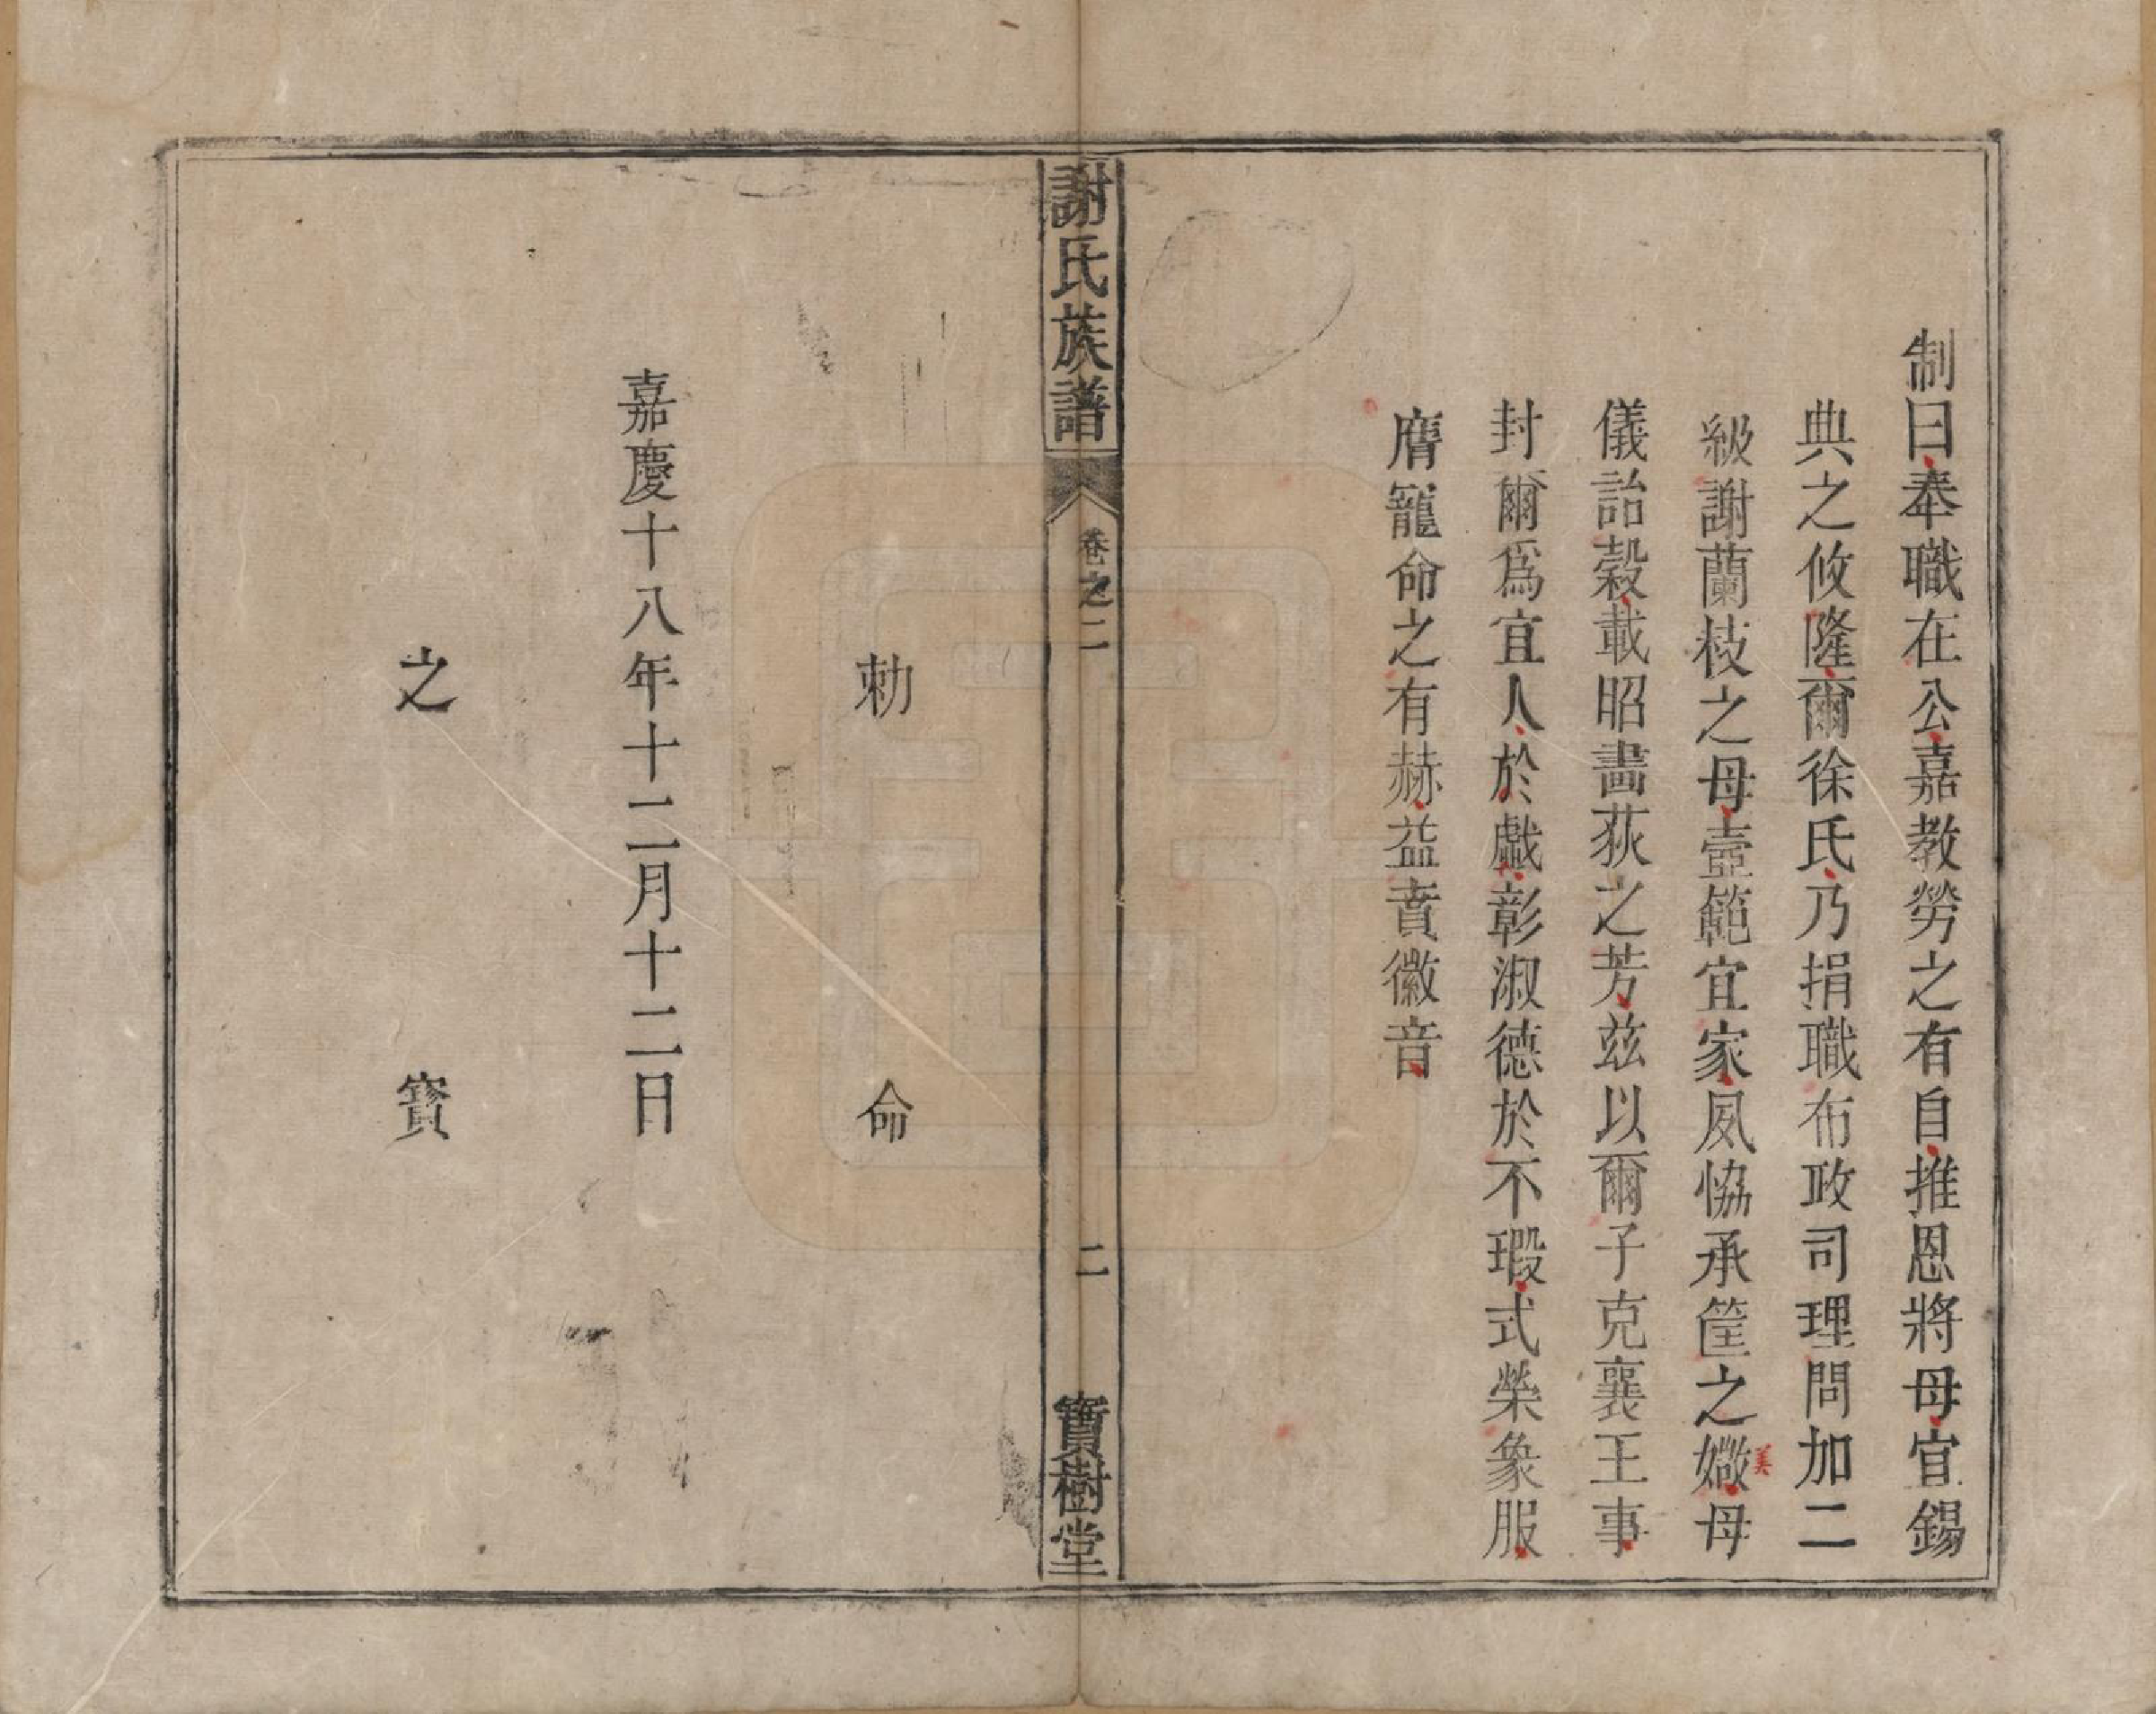 制曰奉職在公嘉教勞之有自推恩將母宜錫
典之攸隆爾徐氏乃捐職布政司理問加二
級謝蘭枝之母壼範宜家夙恊承筐之媺母
美
儀詒穀載昭畫荻之芳茲以爾子克襄王事
封爾爲宜人於戲彰淑德於不瑕式榮象服
膺寵命之有赫益賁徽音
謝氏族譜
卷之二
二
寶樹堂
勅命
嘉慶十八年十二月十二日
之寶